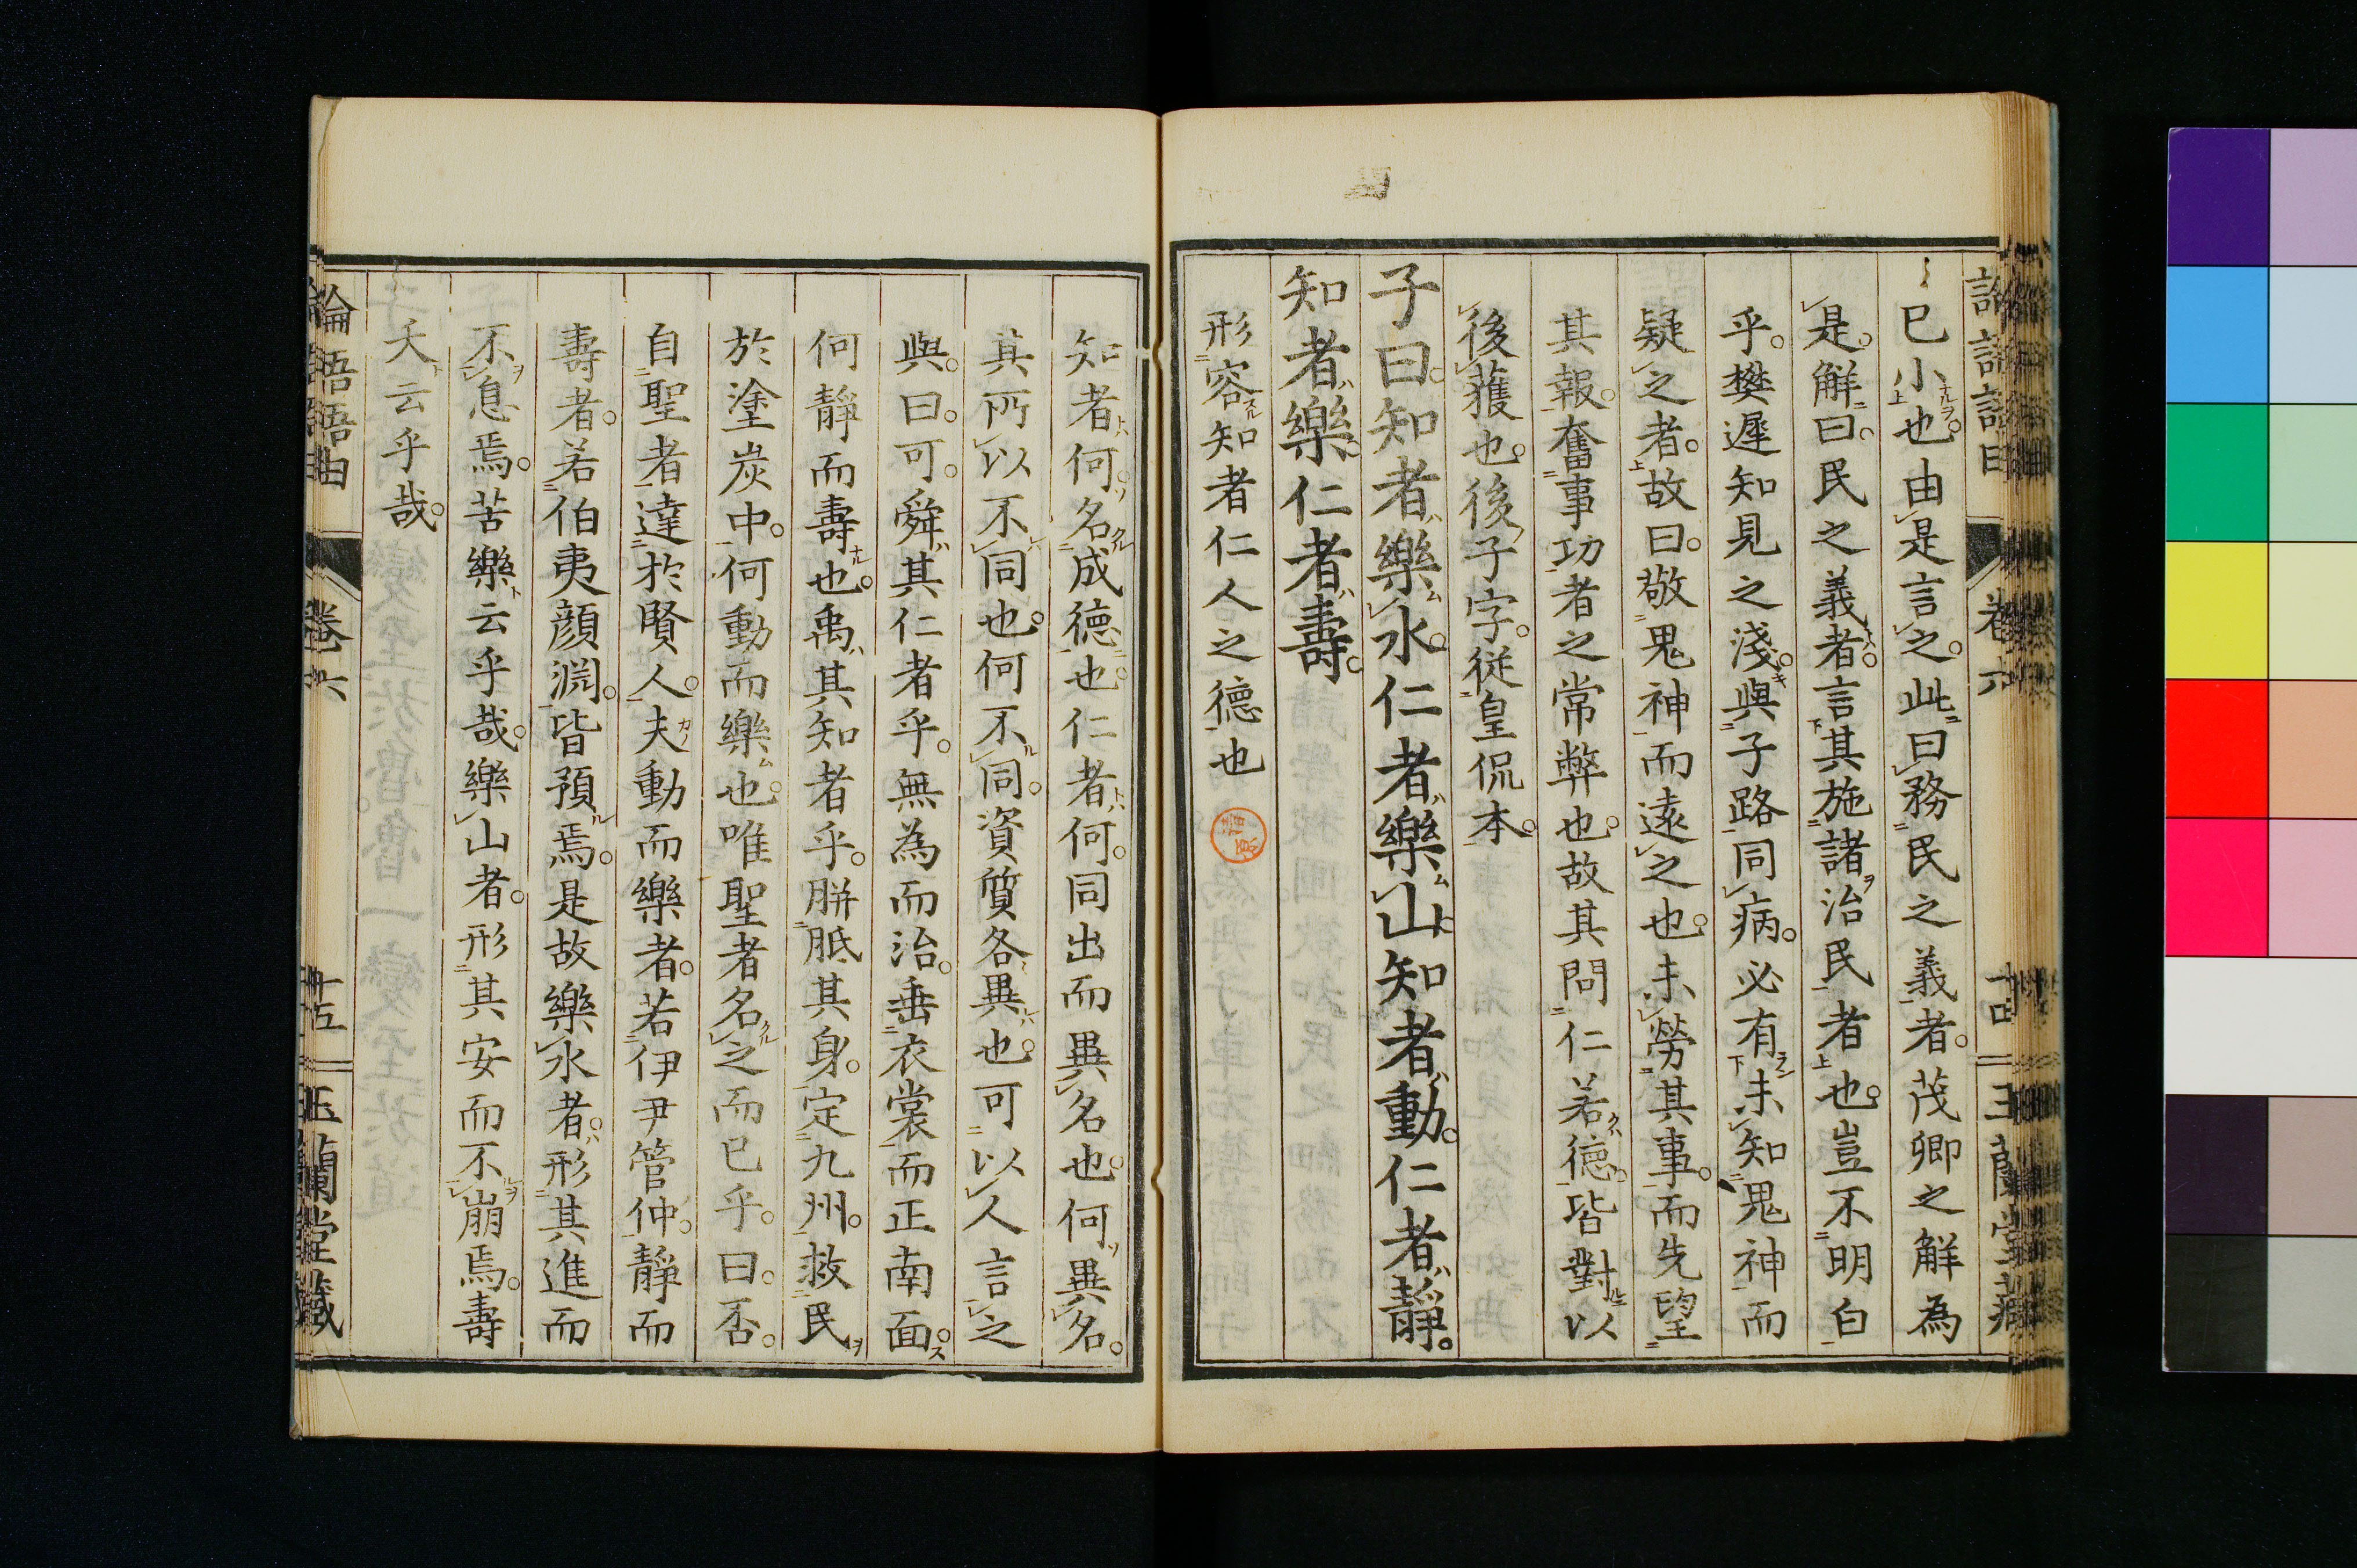 巳小也由是言之此曰務民之義者茂卿之解為
是解曰民之義者言其施諸治民者也豈不明白
乎樊遲知見之淺與子路同病必有未知鬼神而
疑之者故曰敬鬼神而遠之也未勞其事而先望
其報奮事功者之常弊也故其問仁若德皆對以
後獲也後子字從皇侃本
子曰知者樂水仁者樂山知者動仁者靜
知者樂仁者壽
形容知者仁人之德也
知者何名成德也仁者何同出而異名也何異名
其所以不同也何不同資質各異也可以人言之
與曰可舜其仁者乎無為而治垂衣裳而正南面
何靜而壽也禹其知者乎胼胝其身定九州救民
於塗炭中何動而樂也唯聖者名之而已乎曰否
自聖者達於賢人夫動而樂者若伊尹管仲靜而
壽者若伯夷顔淵皆預焉是故樂水者形其進而
不息焉苦樂云乎哉樂山者形其安而不崩焉壽
夭云乎哉
論語語由
卷六
十五
玉蘭堂藏